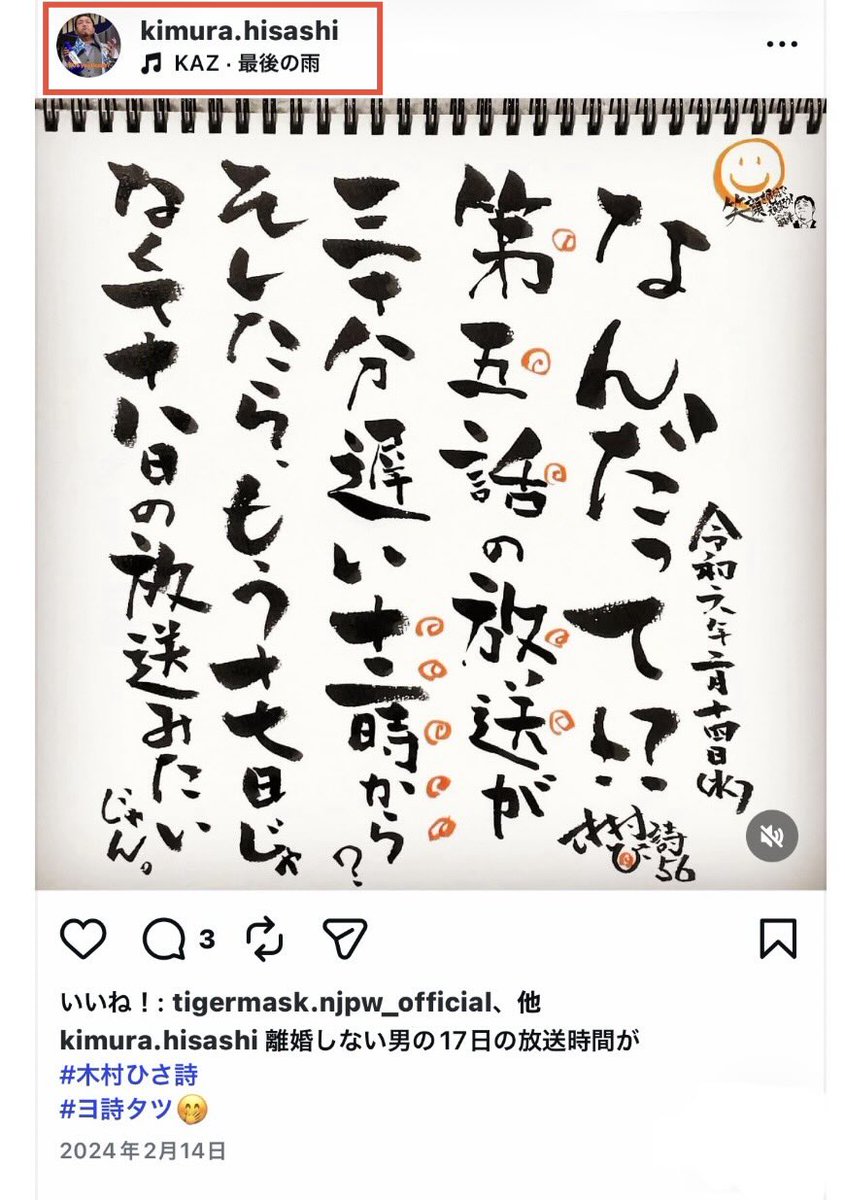 kimura.hisashi
KAZ · 最後の雨
令和六年二月十四日(水)
なんだって!?
第五話の放送が
三十分遅い十二時から?
そしたら、もう十七日じゃ
なくて十八日の放送みたい
じゃん。
詩
56
笑
3
いいね!: tigermask.njpw_official、他
kimura.hisashi 離婚しない男の17日の放送時間が
#木村ひさ詩
#ヨ詩タツ🤭
2024年2月14日